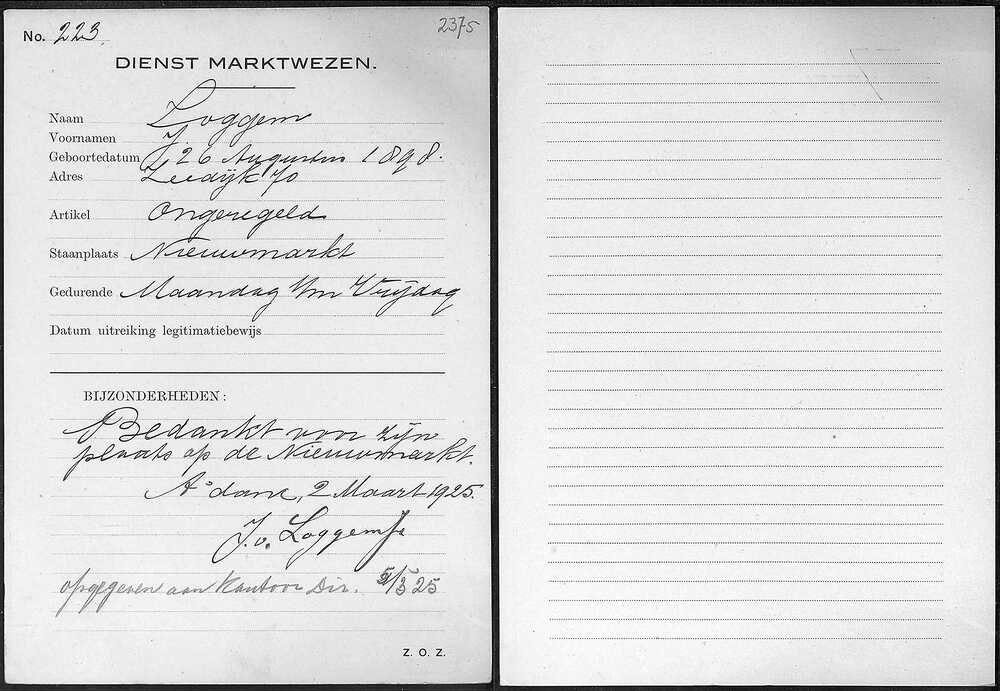 No. 223.
2375
DIENST MARKTWEZEN.
Naam Loggem
Voornamen J.
Geboortedatum 26 Augustus 1898.
Adres Zeedijk 70
Artikel Ongeregeld
Staanplaats Nieuwmarkt
Gedurende Maandag t/m Vrijdag
Datum uitreiking legitimatiebewijs
BIJZONDERHEDEN:
Bedankt voor zijn
plaats op de Nieuwmarkt.
A'dam, 2 Maart 1925.
J. v. Loggem
opgegeven aan Kantoor Dir. 5/3 25
Z. O. Z.